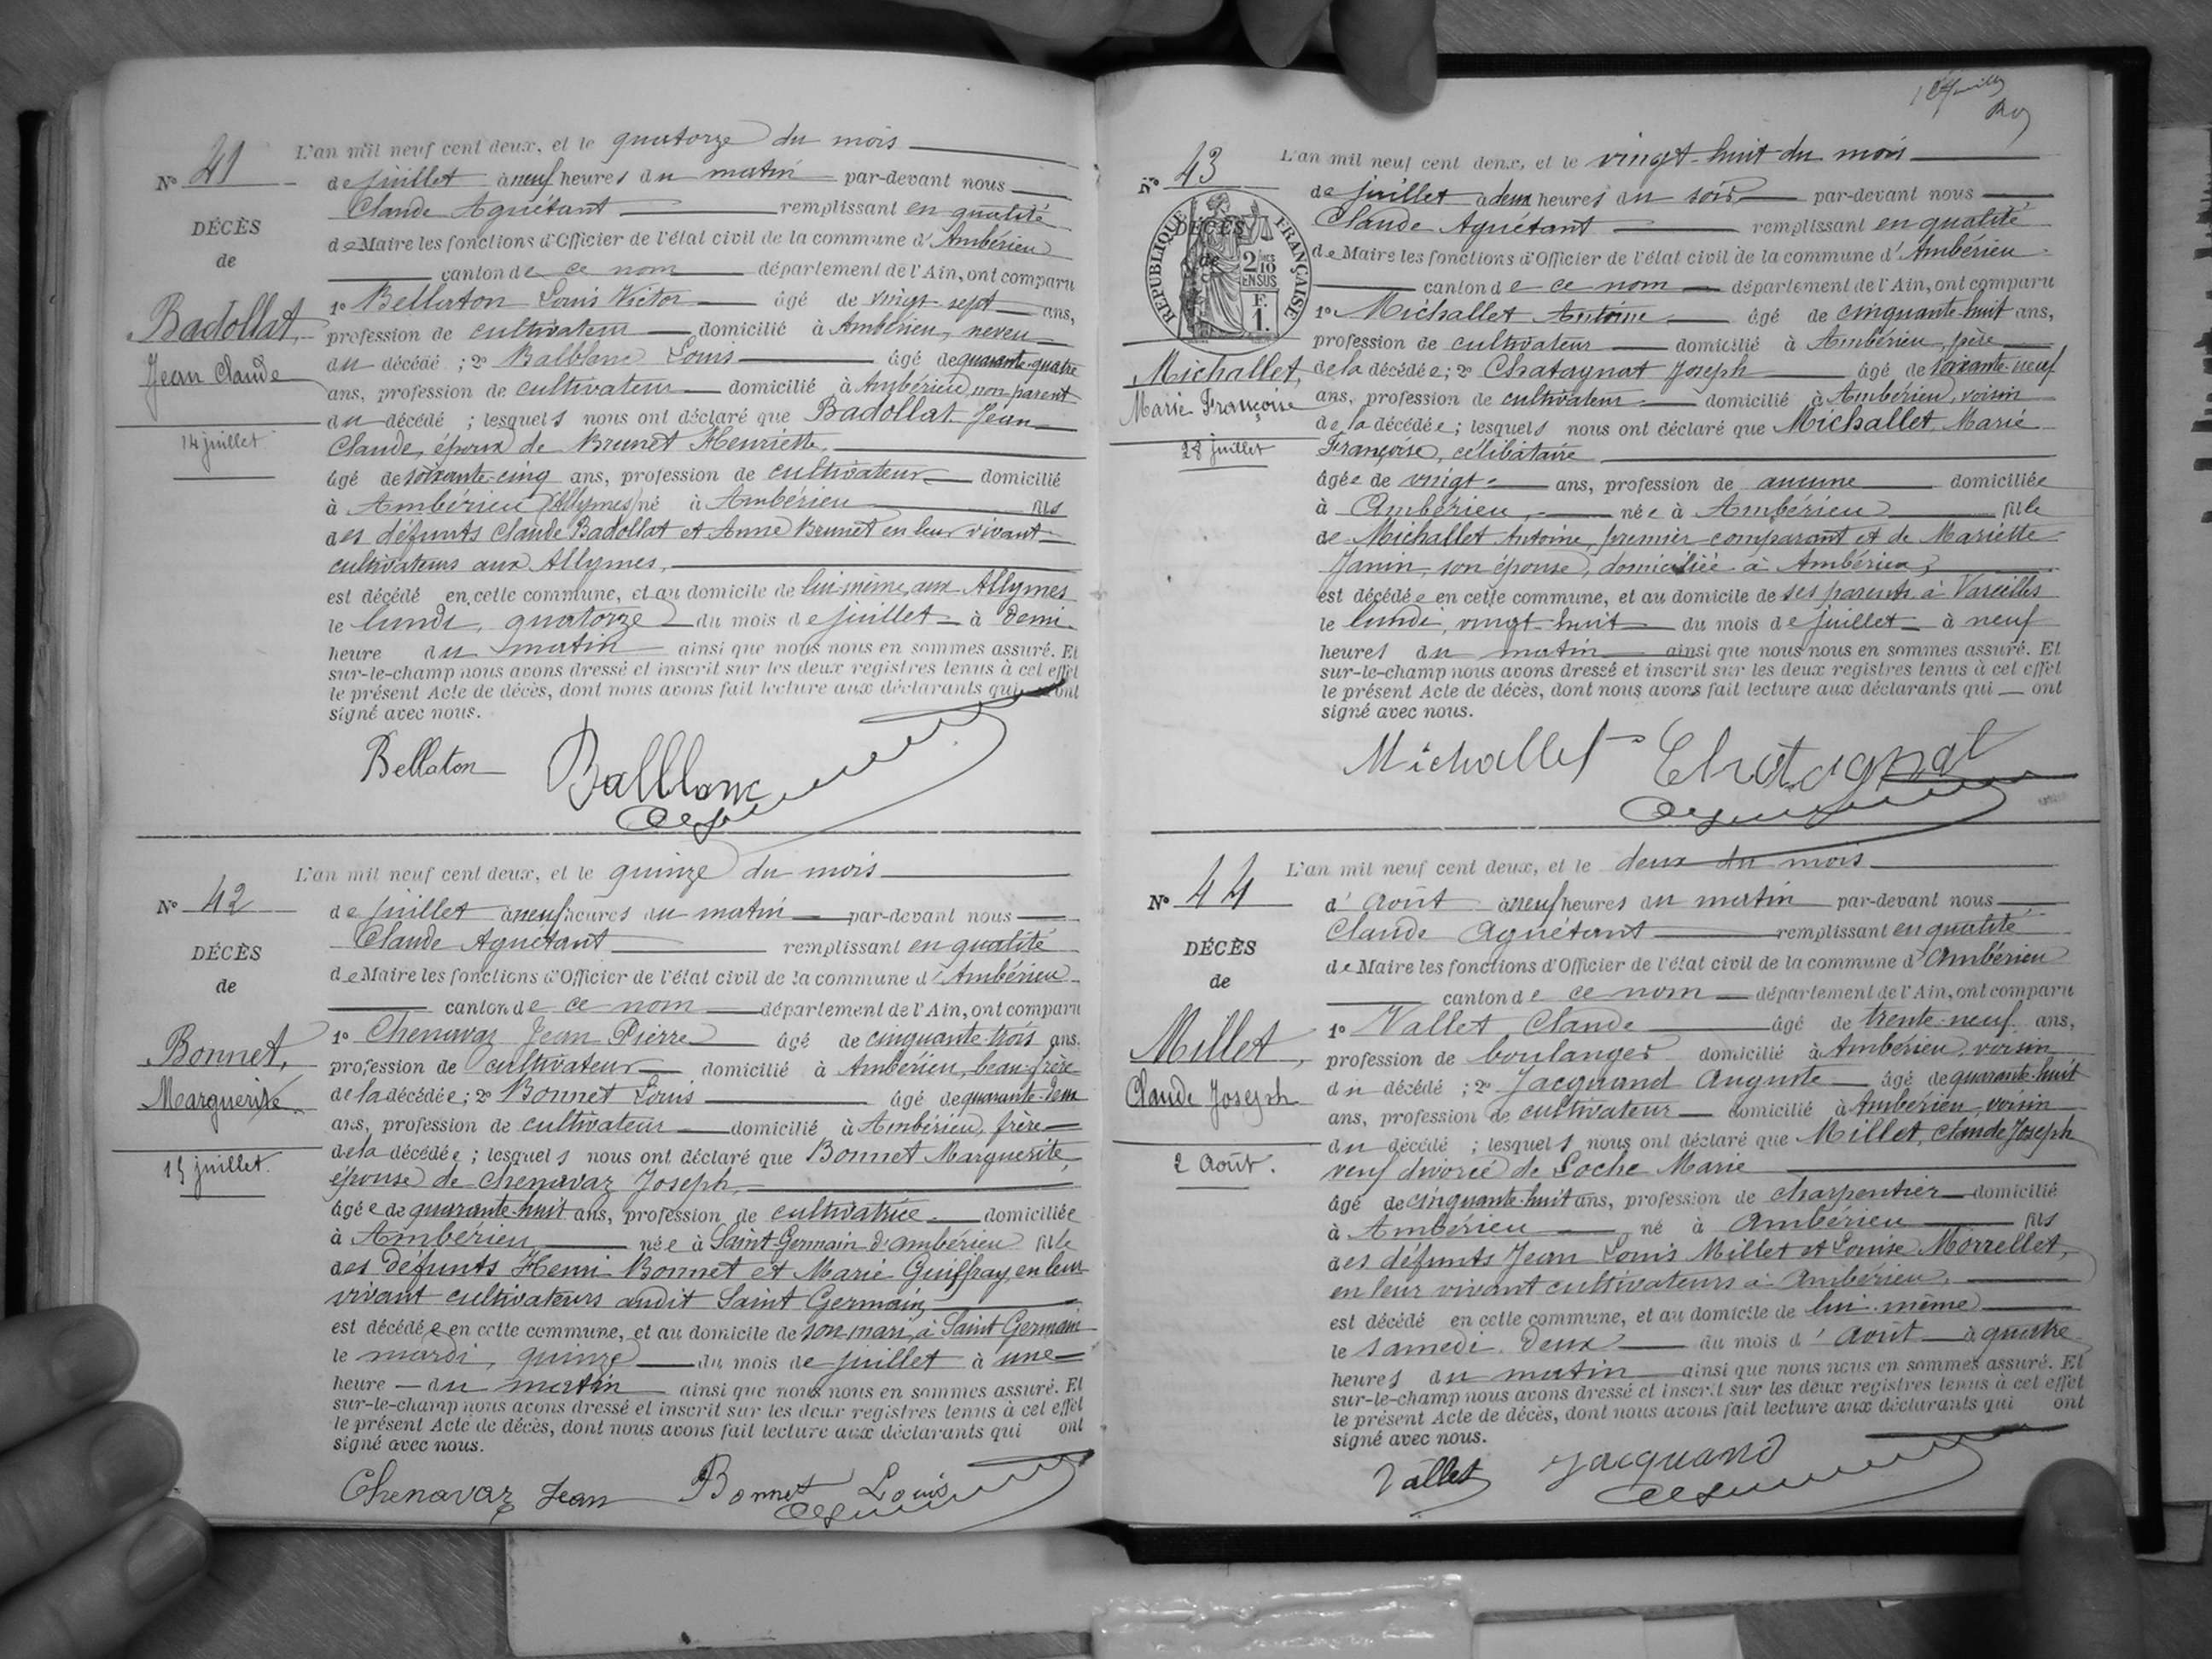 N° 41
DÉCÈS
de
Badollat,
Jean Claude
14 juillet
L'an mil neuf cent deux, et le quatorze du mois
de juillet à neuf heures du matin par-devant nous
Claude Aguétant remplissant en qualité
de Maire les fonctions d'Officier de l'état civil de la commune d'Ambérieu
canton de ce nom département de l'Ain, ont comparu
1° Bellaton Louis Victor âgé de vingt-sept ans,
profession de cultivateur domicilié à Ambérieu, neveu
du décédé ; 2° Balblanc Louis âgé de quarante-quatre
ans, profession de cultivateur domicilié à Ambérieu, non parent
du décédé ; lesquels nous ont déclaré que Badollat Jean
Claude, époux de Brunet Henriette,
âgé de soixante-cinq ans, profession de cultivateur domicilié
à Ambérieu (Allymes) né à Ambérieu fils
des défunts Claude Badollat et Anne Brunet en leur vivant
cultivateurs aux Allymes,
est décédé en cette commune, et au domicile de lui-même, aux Allymes
le lundi, quatorze du mois de juillet à demi-
heure du matin ainsi que nous nous en sommes assuré. Et
sur-le-champ nous avons dressé et inscrit sur les deux registres tenus à cet effet
le présent Acte de décès, dont nous avons fait lecture aux déclarants qui ont
signé avec nous.
Bellaton Balblanc
N° 42
DÉCÈS
de
Bonnet,
Marguerite
15 juillet.
L'an mil neuf cent deux, et le quinze du mois
de juillet à neuf heures du matin par-devant nous
Claude Aguétant remplissant en qualité
de Maire les fonctions d'Officier de l'état civil de la commune d'Ambérieu
canton de ce nom département de l'Ain, ont comparu
1° Chenavaz Jean Pierre âgé de cinquante-trois ans,
profession de cultivateur domicilié à Ambérieu, beau-frère
de la décédée ; 2° Bonnet Louis âgé de quarante-deux
ans, profession de cultivateur domicilié à Ambérieu, frère
de la décédée ; lesquels nous ont déclaré que Bonnet Marguerite,
épouse de Chenavaz Joseph,
âgée de quarante-huit ans, profession de cultivatrice domiciliée
à Ambérieu, née à Saint Germain d'Ambérieu fille
des défunts Henri Bonnet et Marie Guiffray, en leur
vivant cultivateurs audit Saint Germain,
est décédée en cette commune, et au domicile de son mari, à Saint Germain
le mardi, quinze du mois de juillet à une
heure du matin ainsi que nous nous en sommes assuré. Et
sur-le-champ nous avons dressé et inscrit sur les deux registres tenus à cet effet
le présent Acte de décès, dont nous avons fait lecture aux déclarants qui ont
signé avec nous.
Chenavaz Jean Bonnet Louis
N° 43
DÉCÈS
de
RÉPUBLIQUE FRANÇAISE
2/10
EN SUS
F.
1.
Michallet,
Marie Françoise
28 juillet
L'an mil neuf cent deux, et le vingt-huit du mois
de juillet à deux heures du soir par-devant nous
Claude Aguétant remplissant en qualité
de Maire les fonctions d'Officier de l'état civil de la commune d'Ambérieu
canton de ce nom département de l'Ain, ont comparu
1° Michallet Antoine âgé de cinquante-huit ans,
profession de cultivateur domicilié à Ambérieu, père
de la décédée ; 2° Chatagnat Joseph âgé de soixante-neuf
ans, profession de cultivateur domicilié à Ambérieu, voisin
de la décédée ; lesquels nous ont déclaré que Michallet, Marie
Françoise, célibataire
âgée de vingt ans, profession de aucune domiciliée
à Ambérieu, née à Ambérieu fille
de Michallet Antoine, premier comparant et de Mariette
Janin, son épouse, domiciliée à Ambérieu,
est décédée en cette commune, et au domicile de ses parents à Vareilles
le lundi, vingt-huit du mois de juillet à neuf
heures du matin ainsi que nous nous en sommes assuré. Et
sur-le-champ nous avons dressé et inscrit sur les deux registres tenus à cet effet
le présent Acte de décès, dont nous avons fait lecture aux déclarants qui ont
signé avec nous.
Michallet Chatagnat
N° 44
DÉCÈS
de
Millet,
Claude Joseph
2 Août.
L'an mil neuf cent deux, et le deux du mois
d'Août à neuf heures du matin par-devant nous
Claude Aguétant remplissant en qualité
de Maire les fonctions d'Officier de l'état civil de la commune d'Ambérieu
canton de ce nom département de l'Ain, ont comparu
1° Vallet, Claude âgé de trente-neuf ans,
profession de boulanger domicilié à Ambérieu, voisin
du décédé ; 2° Jacquand Auguste âgé de quarante-huit
ans, profession de cultivateur domicilié à Ambérieu, voisin
du décédé ; lesquels nous ont déclaré que Millet, Claude Joseph
veuf divorcé de Loche Marie
âgé de cinquante-huit ans, profession de charpentier domicilié
à Ambérieu né à Ambérieu fils
des défunts Jean Louis Millet et Louise Morrellet,
en leur vivant cultivateurs à Ambérieu,
est décédé en cette commune, et au domicile de lui-même
le samedi, deux du mois d'Août à quatre
heures du matin ainsi que nous nous en sommes assuré. Et
sur-le-champ nous avons dressé et inscrit sur les deux registres tenus à cet effet
le présent Acte de décès, dont nous avons fait lecture aux déclarants qui ont
signé avec nous.
Vallet Jacquand